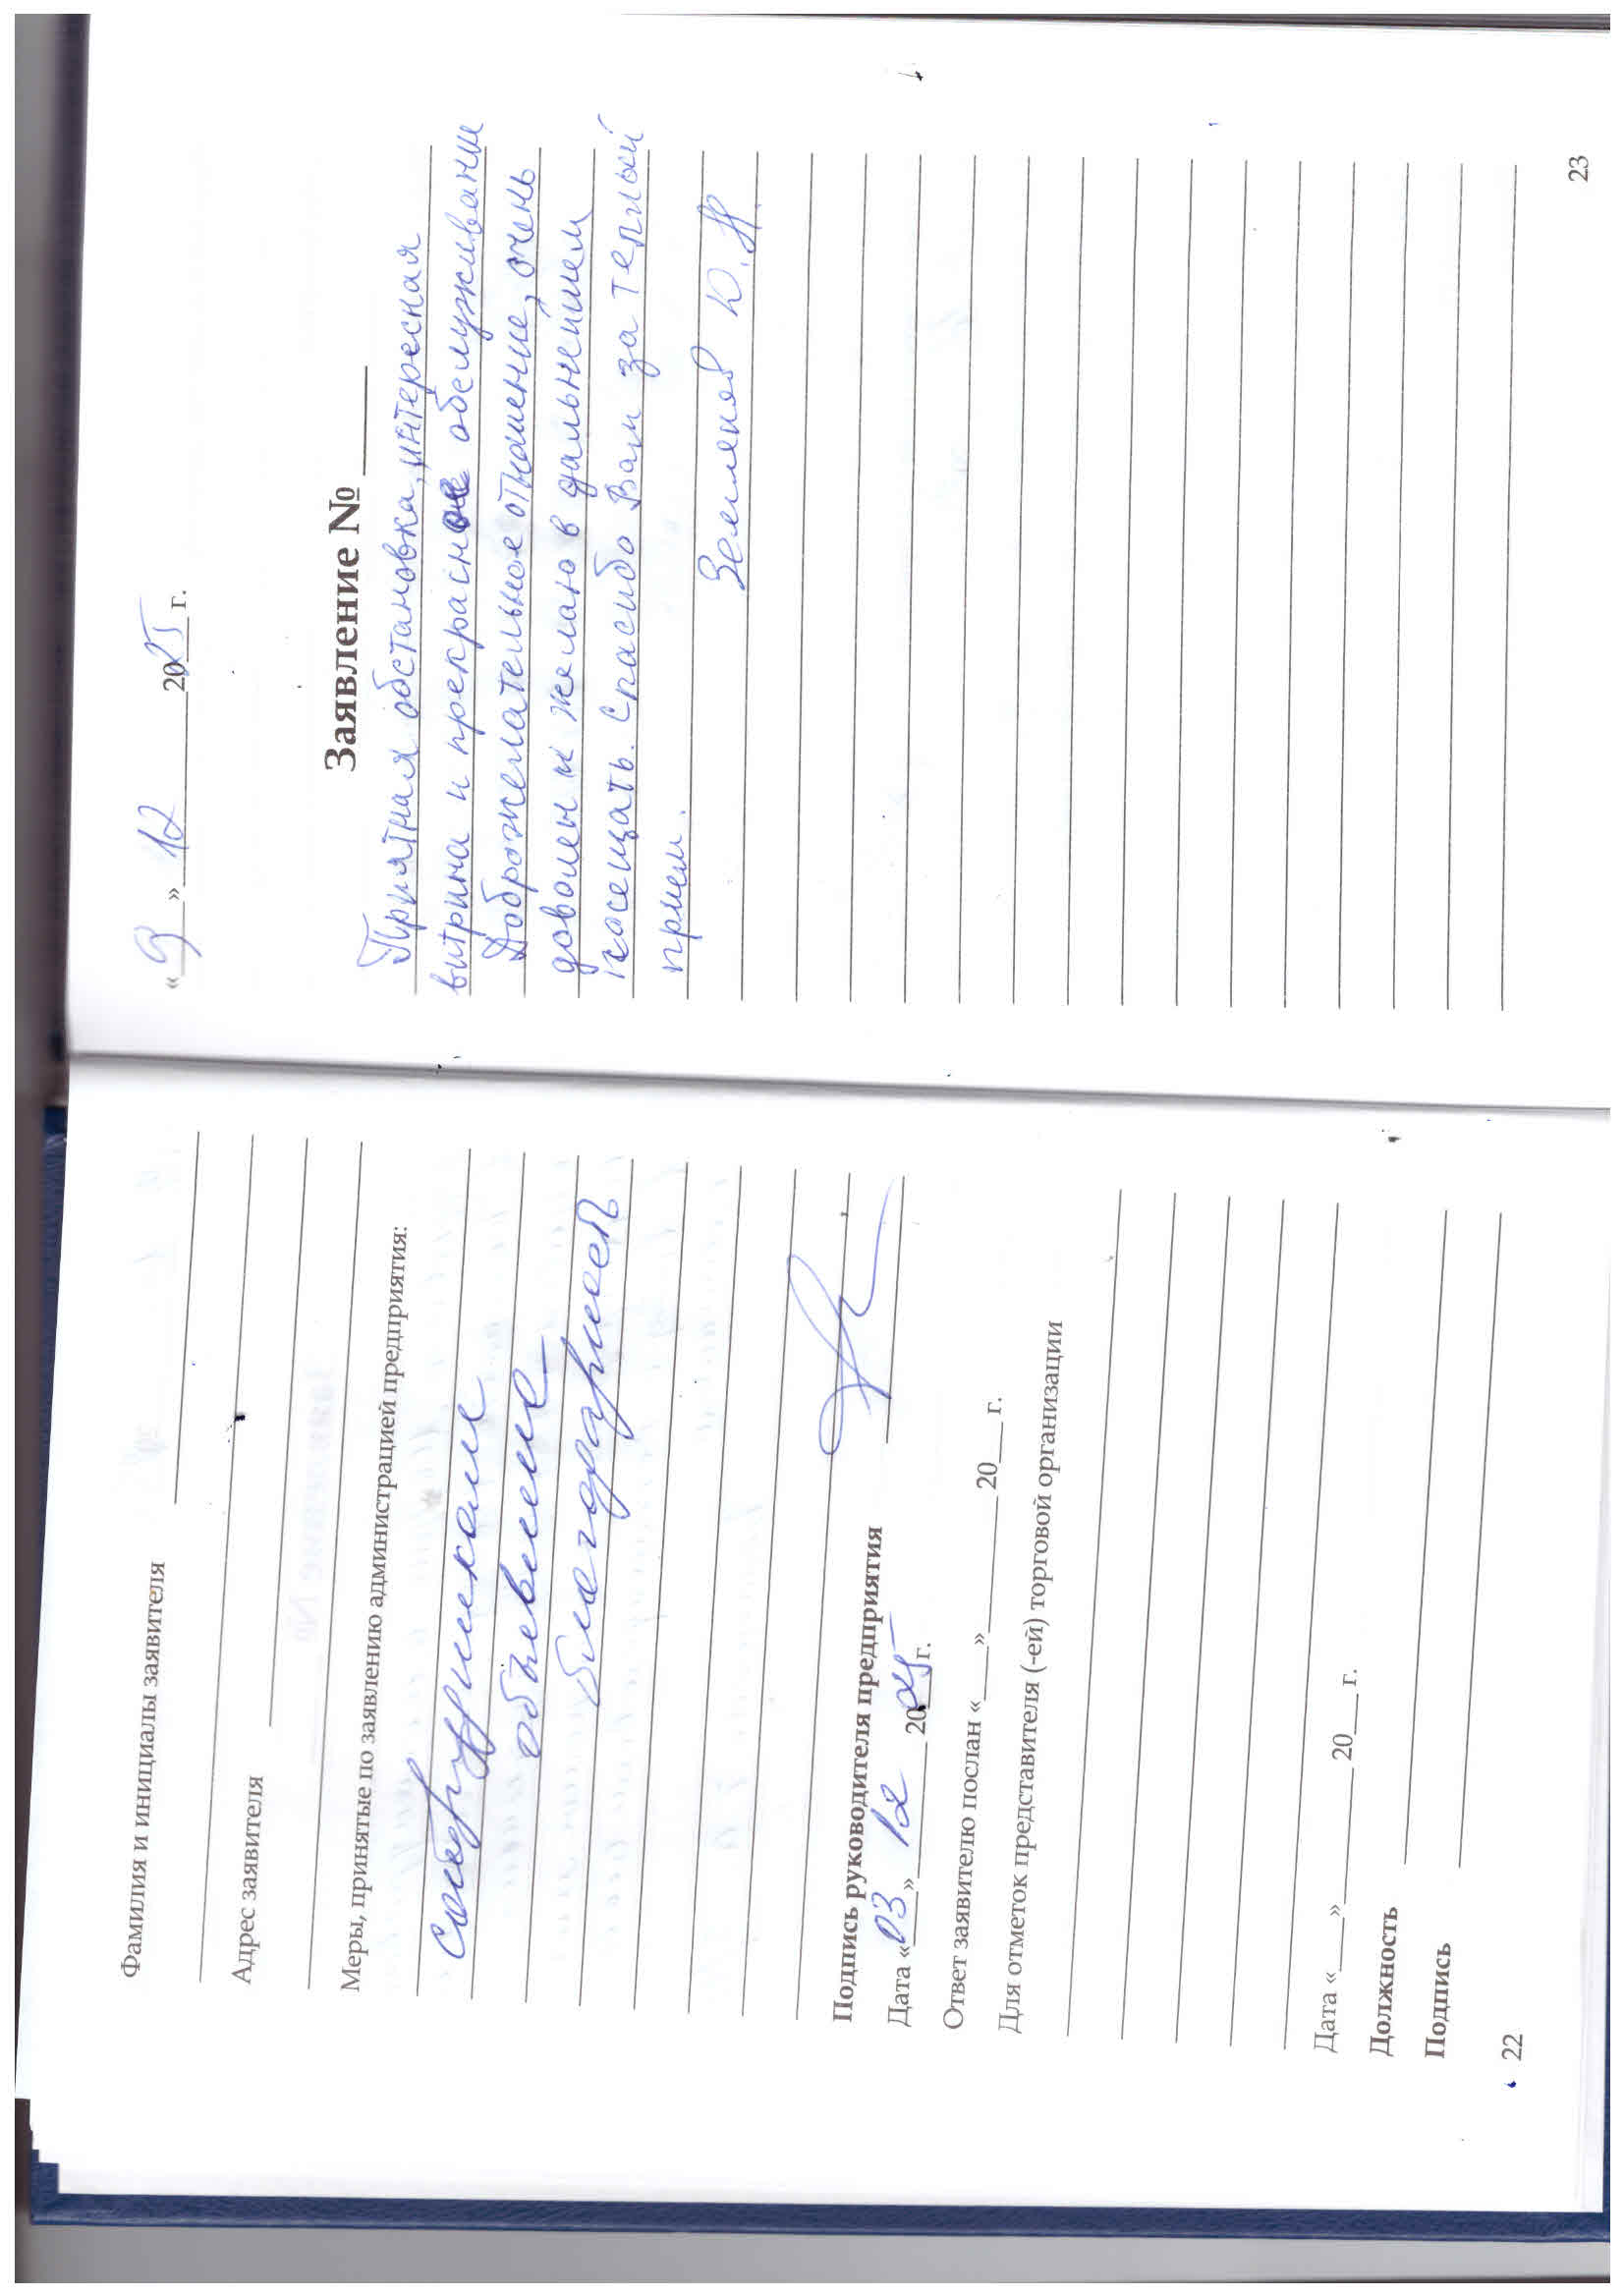 Фамилия и инициалы заявителя
Адрес заявителя
Меры, принятые по заявлению администрацией предприятия:
сотрудникам
объявлена
благодарность
Подпись руководителя предприятия
Дата «03» 12 2025 г.
Ответ заявителю послан «___» ______ 20__ г.
Для отметок представителя (-ей) торговой организации
Дата «___» ______ 20__ г.
Должность
Подпись
22
«9» 12 2025 г.
Заявление № ____
Приятная обстановка, интересная
витрина и прекрасное обслуживание
Доброжелательное отношение, очень
доволен и желаю в дальнейшем
посещать. Спасибо Вам за теплый
прием.
Земляков Ю.Н.
23